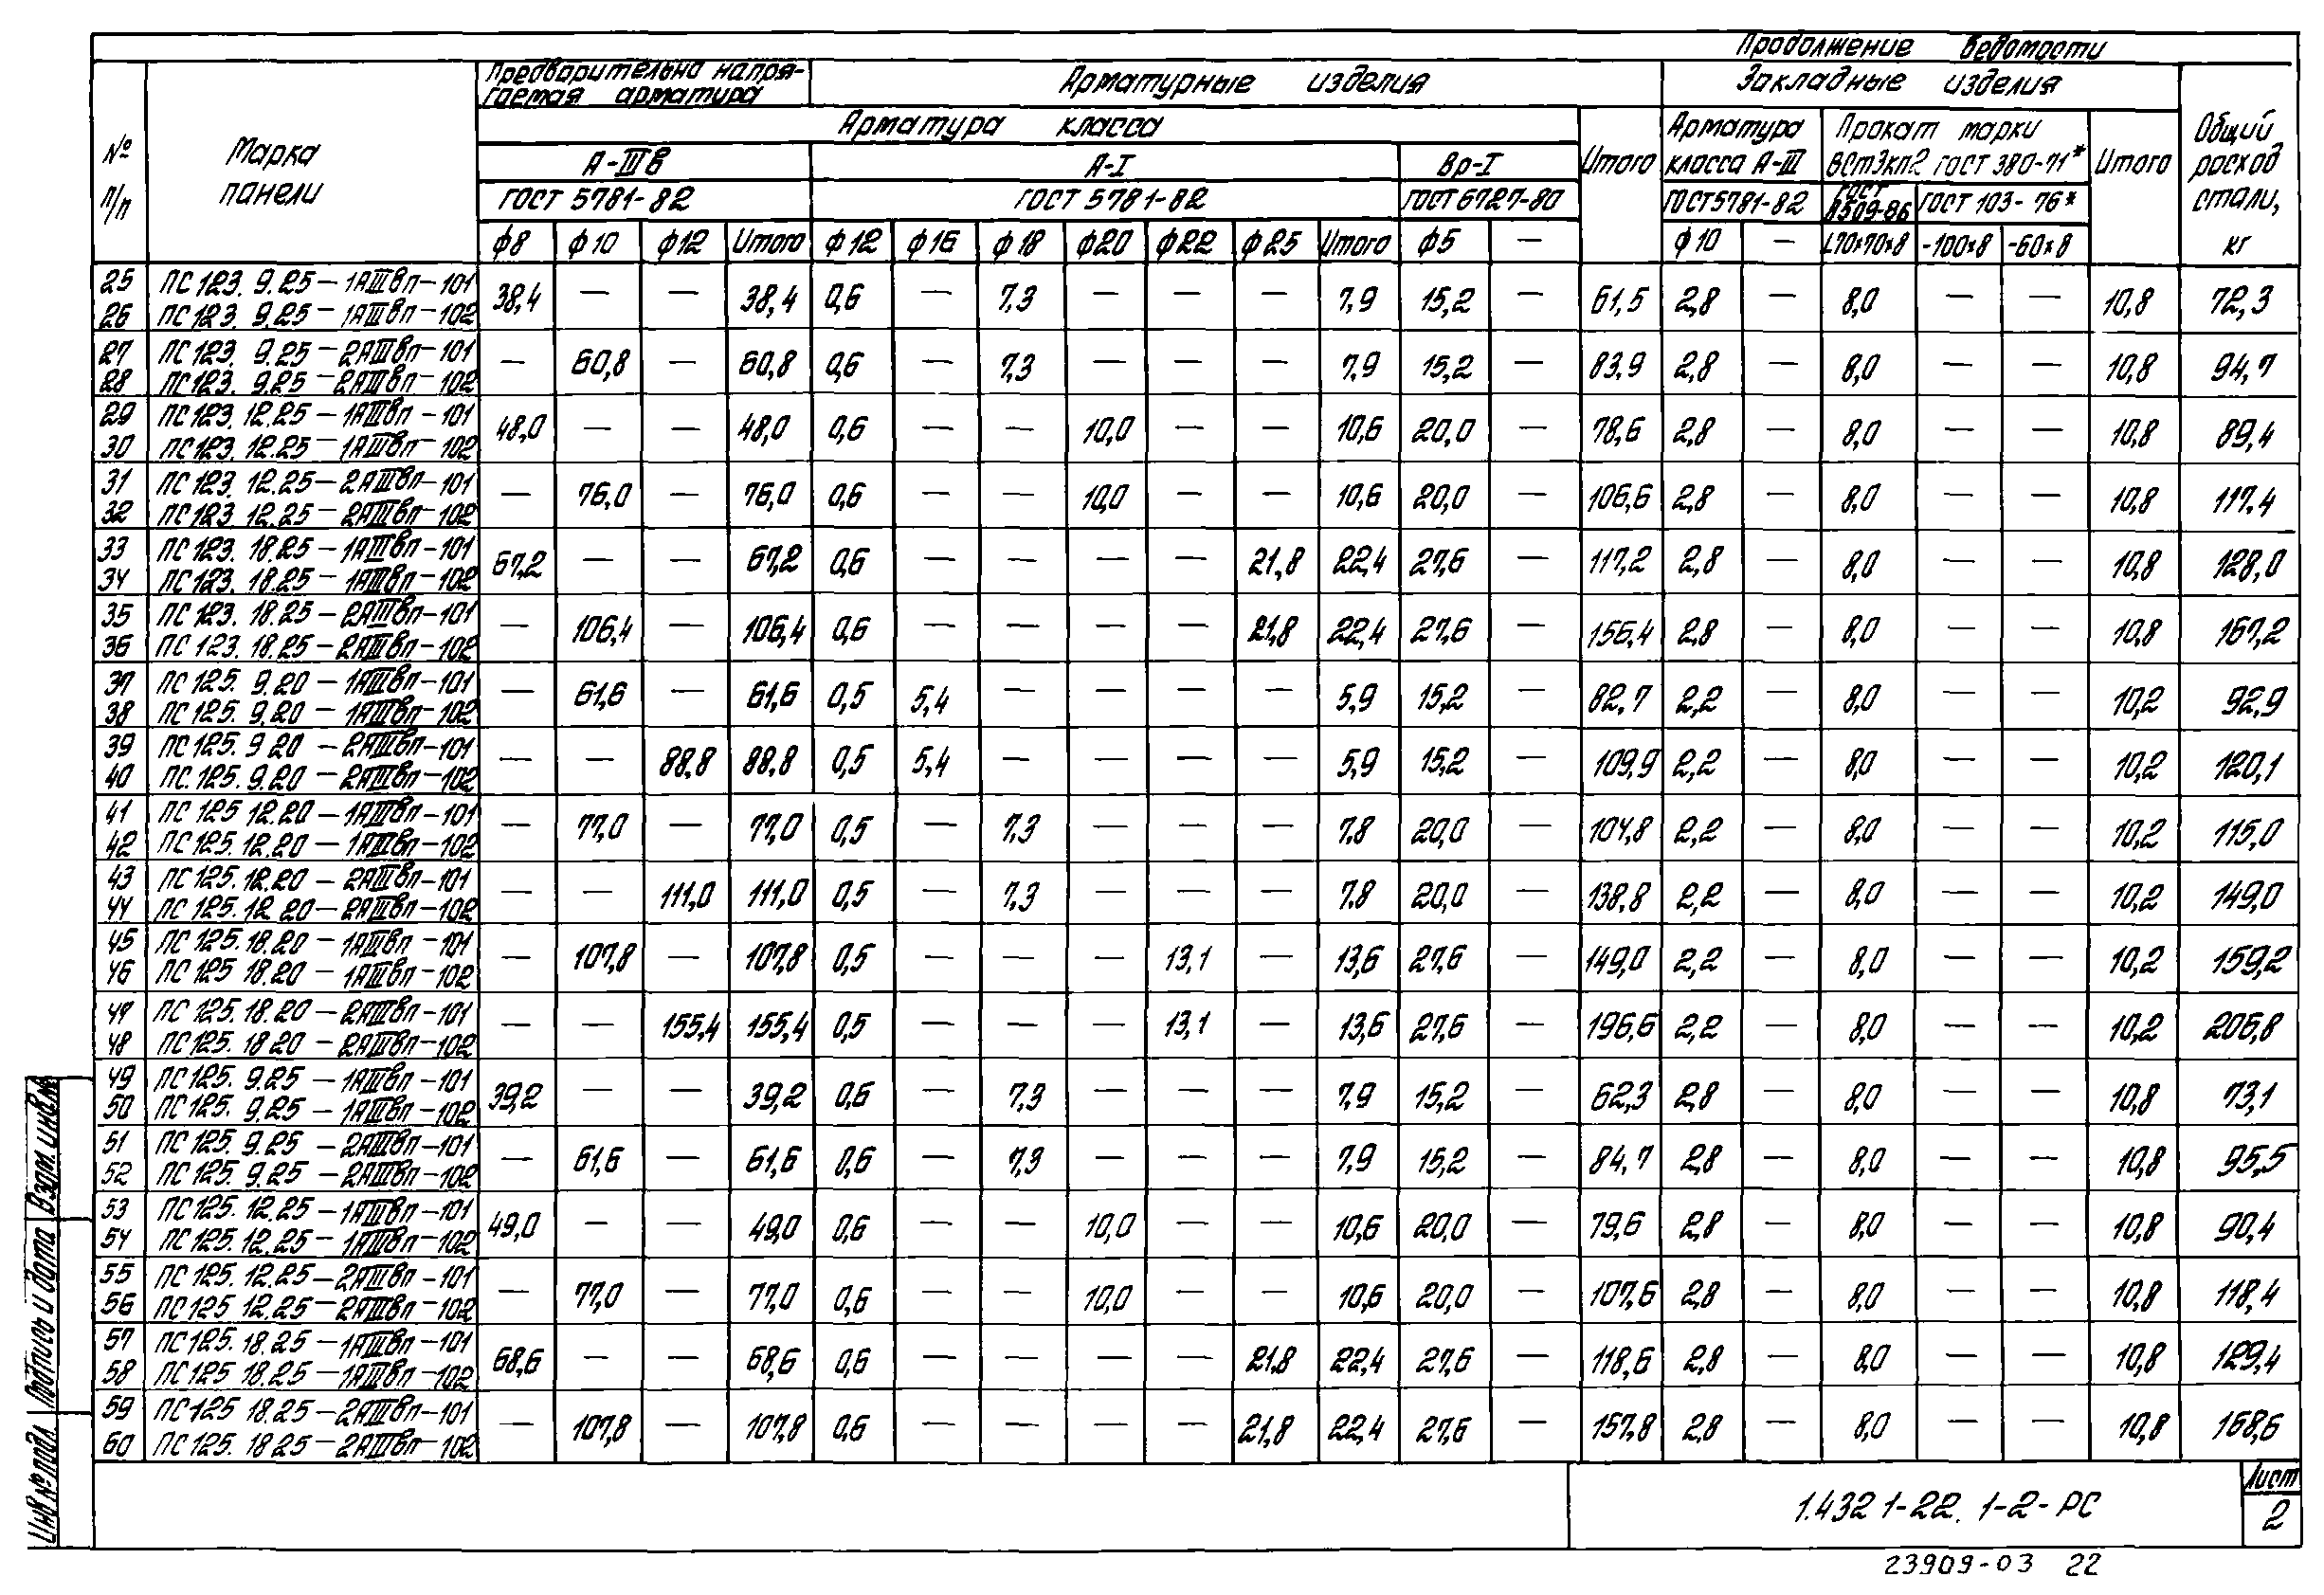 Продолжение ведомости
№ п/п
Марка панели
Предварительно напря-
гаемая арматура
Арматурные изделия
Закладные изделия
Общий расход стали, кг
Арматура класса
Итого
Арматура класса А-III
Прокат марки ВСт3кп2 ГОСТ 380-71*
Итого
А-IIIв
А-I
Вр-I
ГОСТ 5781-82
ГОСТ 5781-82
ГОСТ 6727-80
ГОСТ 5781-82
ГОСТ 8509-86
ГОСТ 103-76*
ф8 ф10 ф12 Итого ф12 ф16 ф18 ф20 ф22 ф25 Итого ф5 — ф10 — L70×70×8 -100×8 -60×8
25 ПС 123. 9.25-1АIIIвп-101
26 ПС 123. 9.25-1АIIIвп-102
38,4 — — 38,4 0,6 — 7,3 — — — 7,9 15,2 — 61,5 2,8 — 8,0 — — 10,8 72,3
27 ПС 123. 9.25-2АIIIвп-101
28 ПС 123. 9.25-2АIIIвп-102
— 60,8 — 60,8 0,6 — 7,3 — — — 7,9 15,2 — 83,9 2,8 — 8,0 — — 10,8 94,7
29 ПС 123. 12.25-1АIIIвп-101
30 ПС 123. 12.25-1АIIIвп-102
48,0 — — 48,0 0,6 — — 10,0 — — 10,6 20,0 — 78,6 2,8 — 8,0 — — 10,8 89,4
31 ПС 123. 12.25-2АIIIвп-101
32 ПС 123 12.25-2АIIIвп-102
— 76,0 — 76,0 0,6 — — 10,0 — — 10,6 20,0 — 106,6 2,8 — 8,0 — — 10,8 117,4
33 ПС 123. 18.25-1АIIIвп-101
34 ПС 123. 18.25-1АIIIвп-102
67,2 — — 67,2 0,6 — — — — 21,8 22,4 27,6 — 117,2 2,8 — 8,0 — — 10,8 128,0
35 ПС 123. 18.25-2АIIIвп-101
36 ПС 123. 18.25-2АIIIвп-102
— 106,4 — 106,4 0,6 — — — — 21,8 22,4 27,6 — 156,4 2,8 — 8,0 — — 10,8 167,2
37 ПС 125. 9.20-1АIIIвп-101
38 ПС 125. 9.20-1АIIIвп-102
— 61,6 — 61,6 0,5 5,4 — — — — 5,9 15,2 — 82,7 2,2 — 8,0 — — 10,2 92,9
39 ПС 125. 9 20-2АIIIвп-101
40 ПС. 125. 9.20-2АIIIвп-102
— — 88,8 88,8 0,5 5,4 — — — — 5,9 15,2 — 109,9 2,2 — 8,0 — — 10,2 120,1
41 ПС 125 12.20-1АIIIвп-101
42 ПС 125. 12.20-1АIIIвп-102
— 77,0 — 77,0 0,5 — 7,3 — — — 7,8 20,0 — 104,8 2,2 — 8,0 — — 10,2 115,0
43 ПС 125. 12.20-2АIIIвп-101
44 ПС 125. 12 20-2АIIIвп-102
— — 111,0 111,0 0,5 — 7,3 — — — 7,8 20,0 — 138,8 2,2 — 8,0 — — 10,2 149,0
45 ПС 125. 18.20-1АIIIвп-101
46 ПС 125 18.20-1АIIIвп-102
— 107,8 — 107,8 0,5 — — — 13,1 — 13,6 27,6 — 149,0 2,2 — 8,0 — — 10,2 159,2
47 ПС 125. 18.20-2АIIIвп-101
48 ПС 125. 18 20-2АIIIвп-102
— — 155,4 155,4 0,5 — — — 13,1 — 13,6 27,6 — 196,6 2,2 — 8,0 — — 10,2 206,8
49 ПС 125. 9.25-1АIIIвп-101
50 ПС 125. 9.25-1АIIIвп-102
39,2 — — 39,2 0,6 — 7,3 — — — 7,9 15,2 — 62,3 2,8 — 8,0 — — 10,8 73,1
51 ПС 125. 9.25-2АIIIвп-101
52 ПС 125. 9.25-2АIIIвп-102
— 61,6 — 61,6 0,6 — 7,3 — — — 7,9 15,2 — 84,7 2,8 — 8,0 — — 10,8 95,5
53 ПС 125. 12.25-1АIIIвп-101
54 ПС 125. 12.25-1АIIIвп-102
49,0 — — 49,0 0,6 — — 10,0 — — 10,6 20,0 — 79,6 2,8 — 8,0 — — 10,8 90,4
55 ПС 125. 12.25-2АIIIвп-101
56 ПС 125 12.25-2АIIIвп-102
— 77,0 — 77,0 0,6 — — 10,0 — — 10,6 20,0 — 107,6 2,8 — 8,0 — — 10,8 118,4
57 ПС 125. 18.25-1АIIIвп-101
58 ПС 125 18.25-1АIIIвп-102
68,6 — — 68,6 0,6 — — — — 21,8 22,4 27,6 — 118,6 2,8 — 8,0 — — 10,8 129,4
59 ПС 125 18.25-2АIIIвп-101
60 ПС 125. 18 25-2АIIIвп-102
— 107,8 — 107,8 0,6 — — — — 21,8 22,4 27,6 — 157,8 2,8 — 8,0 — — 10,8 168,6
Инв № подл. Подпись и дата Взам. инв №
1.432 1-22. 1-2-РС
Лист
2
23909-03 22